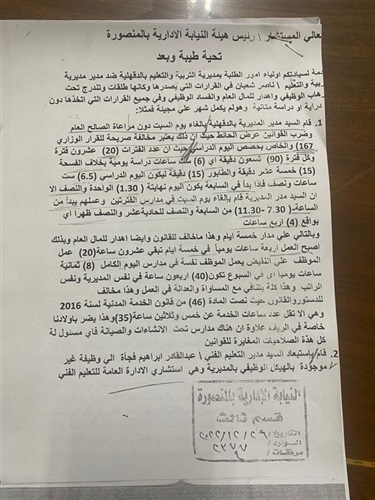 عالي المستشار / رئيس هيئة النيابة الادارية بالمنصورة
تحية طيبة وبعد
دمة لسيادتكم اولياء امور الطلبة بمديرية التربية والتعليم بالدقهلية ضد مدير مديرية
بية والتعليم \ ناصر شعبان في القرارات التي يصدرها وكانها طلقات وتتدرج تحت
هاب الوظيفي واهدار للمال العام والفساد الوظيفي وفي جميع القرارات التي اتخذها دون
دراية او دراسة متانية وهولم يكمل شهر علي مجيئة فمثلا:
1. قام السيد مدير المديرية بالدقهلية بالغاء يوم السبت دون مراعاة الصالح العام
وضرب القوانين عرض الحائط حيث ان ذلك يعتبر مخالفة صريحة للقرار الوزاري
167) والخاص بحصص اليوم الدراسي حيث ان عدد الفترات (20) عشرون فترة
وكل فترة (90) تسعون دقيقة اي (6) ست ساعات دراسة يومية بخلاف الفسحة
(15) خمسة عشر دقيقة والطابور (15) دقيقة ليكون اليوم الدراسي (6.5) ست
ساعات ونصف فإذا بدأ في السابعة يكون اليوم نهايتة (1.30) الواحدة والنصف الا
ان السيد مدير المديرية قام بالغاء يوم السبت في مدارس الفترتين وعملهم يبدأ من
الساعة (7.30 -11.30) من السابعة والنصف للحاديةعشر والنصف ظهرا اي
بواقع (4) اربع ساعات
وبالتالي علي مدار خمسة أيام وهذا مخالف للقانون وايضا اهدار للمال العام وبذلك
اصبح العمل اربعة ساعات يوميا في خمسة ايام تبقي عشرون ساعة(20) عمل
الموظف علي النقيض يعمل الموظف نفسة في مدارس اليوم الكامل (8) ثمانية
ساعات يوميا اي في السبوع تكون(40) اربعون ساعة في نفس المديرية ونفس
الراتب وهذا كلة يتنافي مع المساواة والعدالة في العمل وهذا مخالف
للدستوروالقانون حيث نصت المادة (46) من قانون الخدمة المدنية لسنة 2016
وهي الا تقل عدد ساعات الخدمة عن خمس وثلاثين ساعة(35)وهذا يضر باولادنا
خاصة في الريف علاوة ان هناك مدارس تحت الانشاءات والصيانة فأي مسئول لة
كل هذة الصلاحيات المغايرة للقوانين
2. قام باستبعاد السيد مدير التعليم الفني \ عبدالقادر ابراهيم فجأة الي وظيفة غير
موجودة بالهيكل الوظيفي بالمديرية وهي استشاري الادارة العامة للتعليم الفني
النيابة الإدارية بالمنصورة
قسم ثالث
التاريخ: ٢٠٢٢/١٢/٢٩
الوارد: ٢٣٧٧
مرفقات: ٩